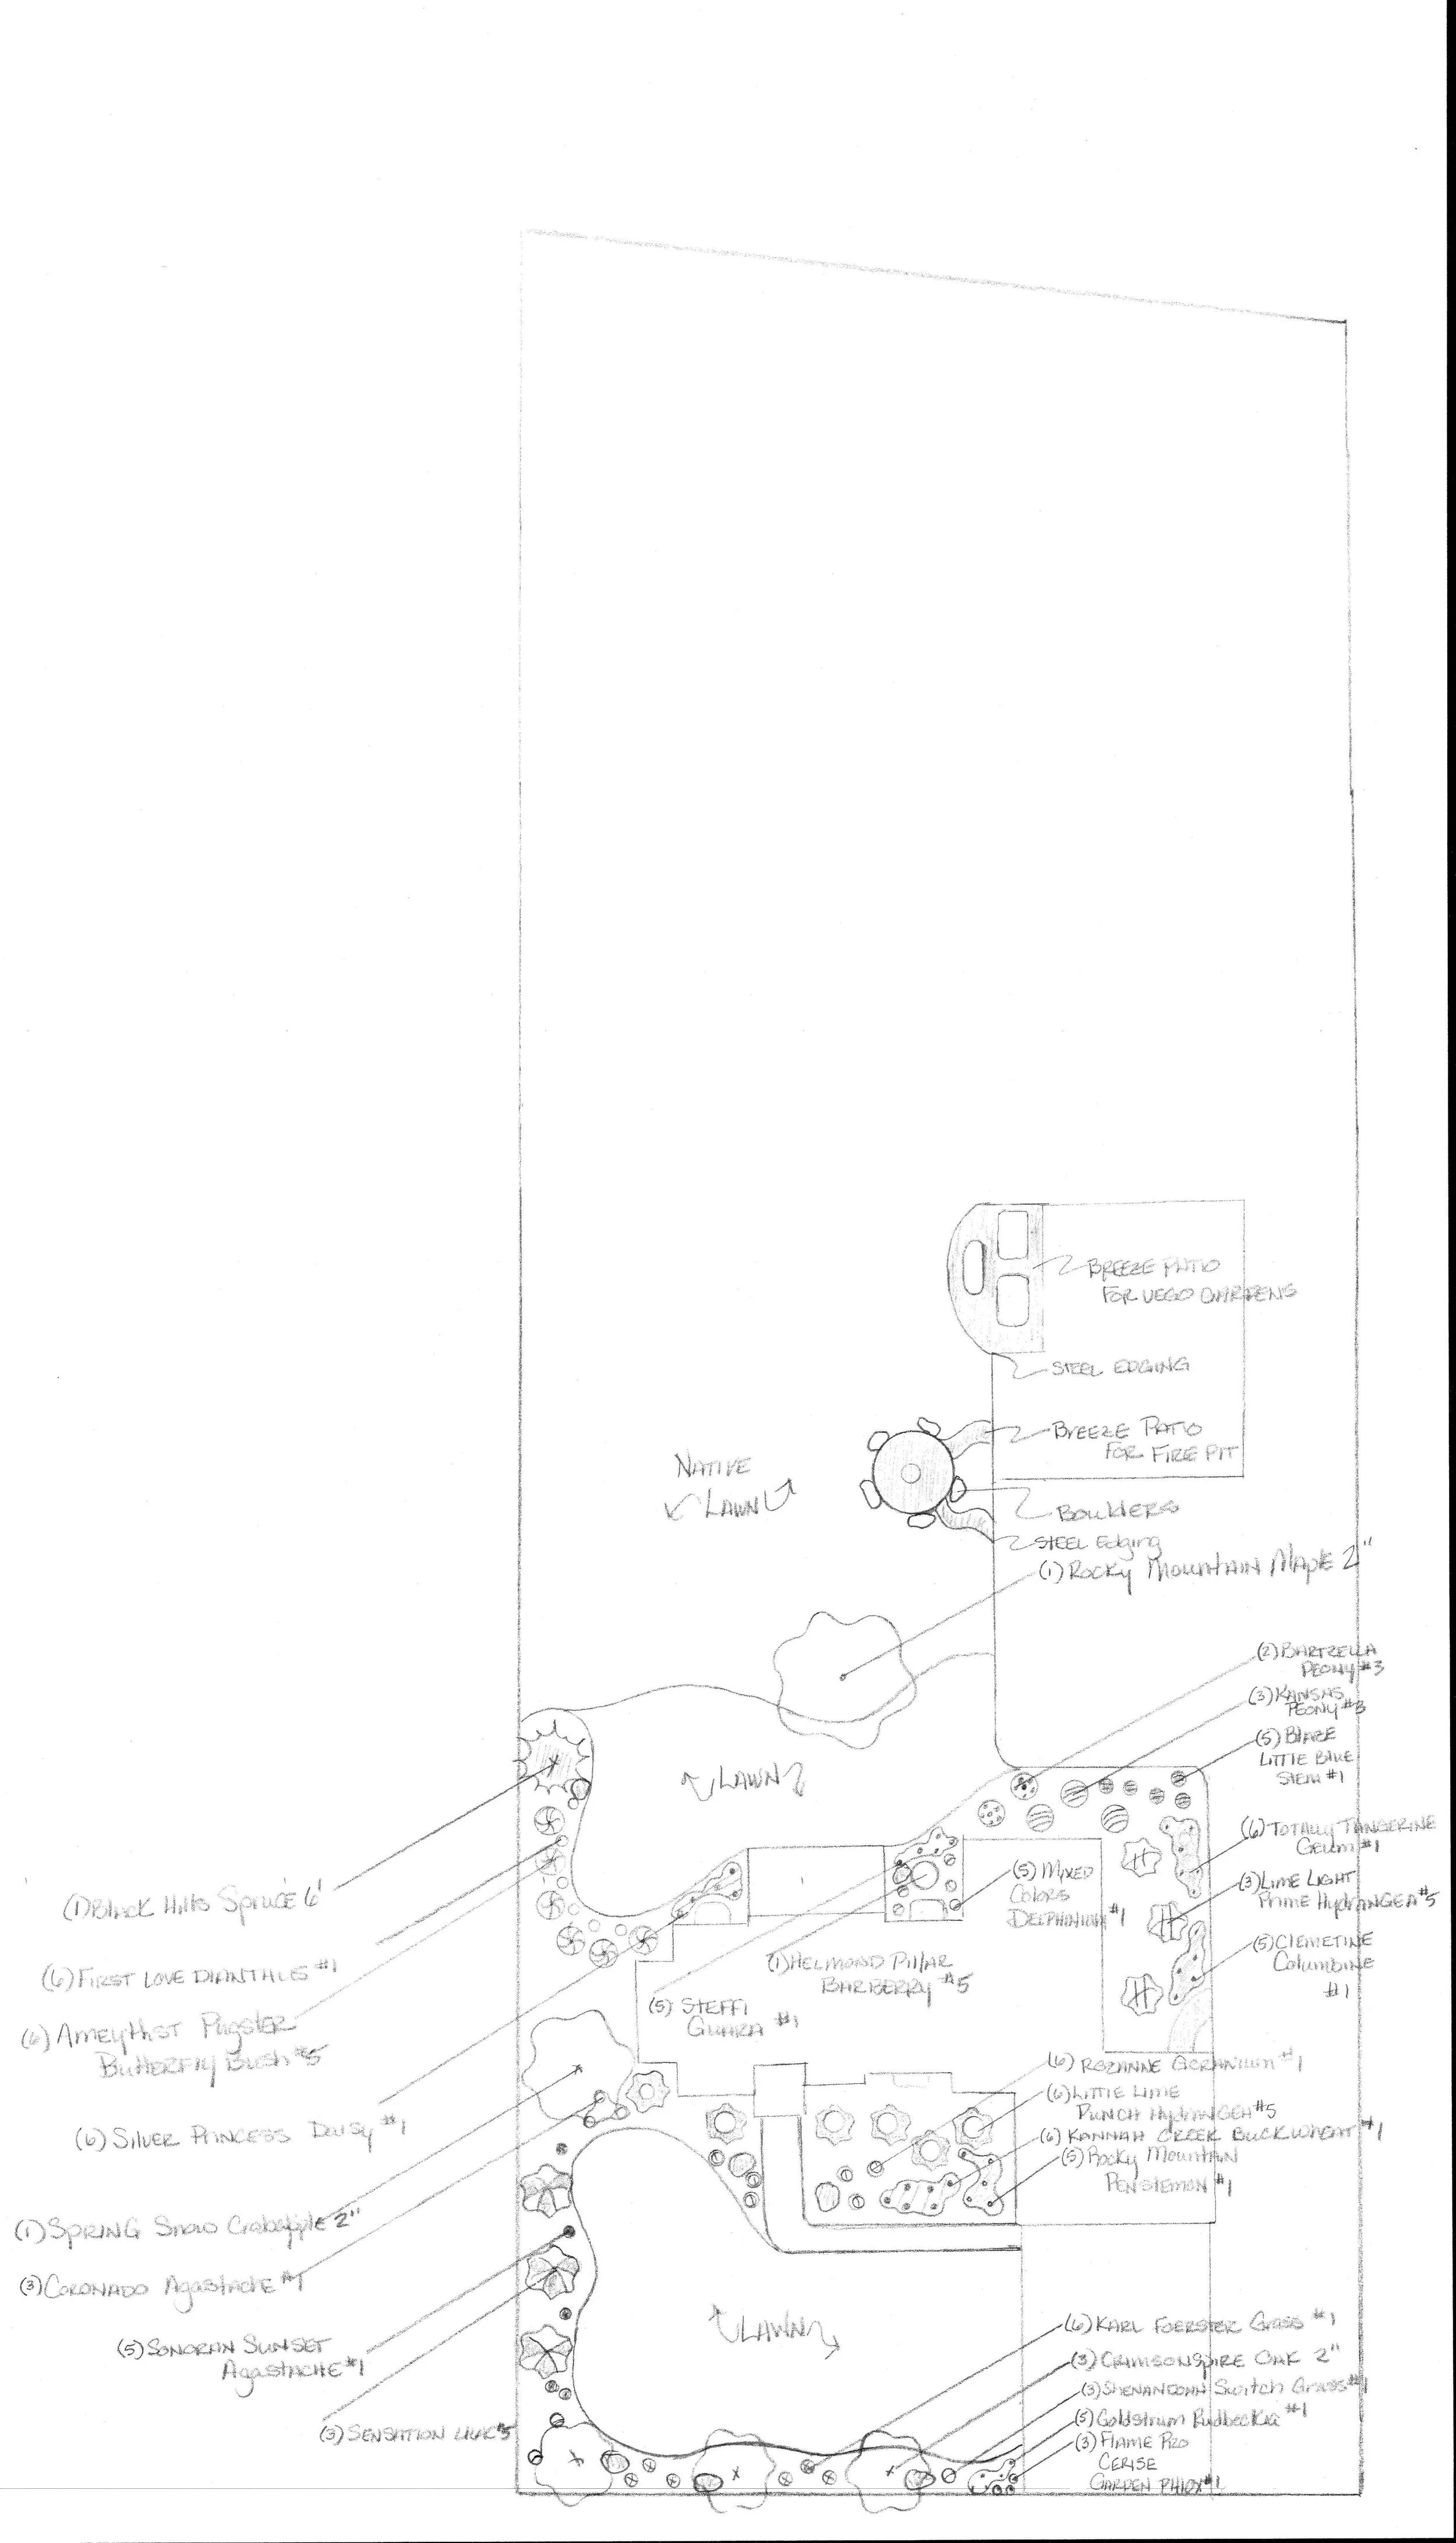 BREEZE PATIO
FOR VEGO GARDENS
STEEL EDGING
BREEZE PATIO
FOR FIRE PIT
NATIVE
LAWN
BOULDERS
STEEL Edging
(1) ROCKY MOUNTAIN MAPLE 2"
(2) BARTZELLA
PEONY #3
(3) KANSAS
PEONY #3
(5) BLAZE
LITTLE BLUE
STEM #1
LAWN
(6) TOTALLY TANGERINE
GEUM #1
(3) LIME LIGHT
Prime HydrANGEA #5
(5) MIXED
COLORS
DELPHINIUM #1
(5) CLEMETINE
Columbine
#1
(1) Black Hills Spruce 6'
(6) FIRST LOVE DIANTHUS #1
(6) AMEythIST Pugster
Butterfly Bush #5
(1) HELMOND PillAR
BARBERRY #5
(5) STEFFI
GUARA #1
(6) SILVER PRINCESS DAISY #1
(6) ROZANNE GERANIUM #1
(6) LITTLE LIME
PUNCH HydrANGEA #5
(6) KANNAH CREEK BUCKWHEAT #1
(5) Rocky Mountain
PENSTEMON #1
(1) SPRING SNOW Crabapple 2"
(3) CORONADO AgastACHE #1
(5) SONORAN SUNSET
AgastACHE #1
(3) SENSATION LILAC #5
LAWN
(6) KARL FOERSTER GRASS #1
(3) CRIMSONSPIRE OAK 2"
(3) SHENANDOAH Switch Grass #1
(5) Goldstrum Rudbeckia #1
(3) FLAME PRO
CERISE
GARDEN PHLOX #1